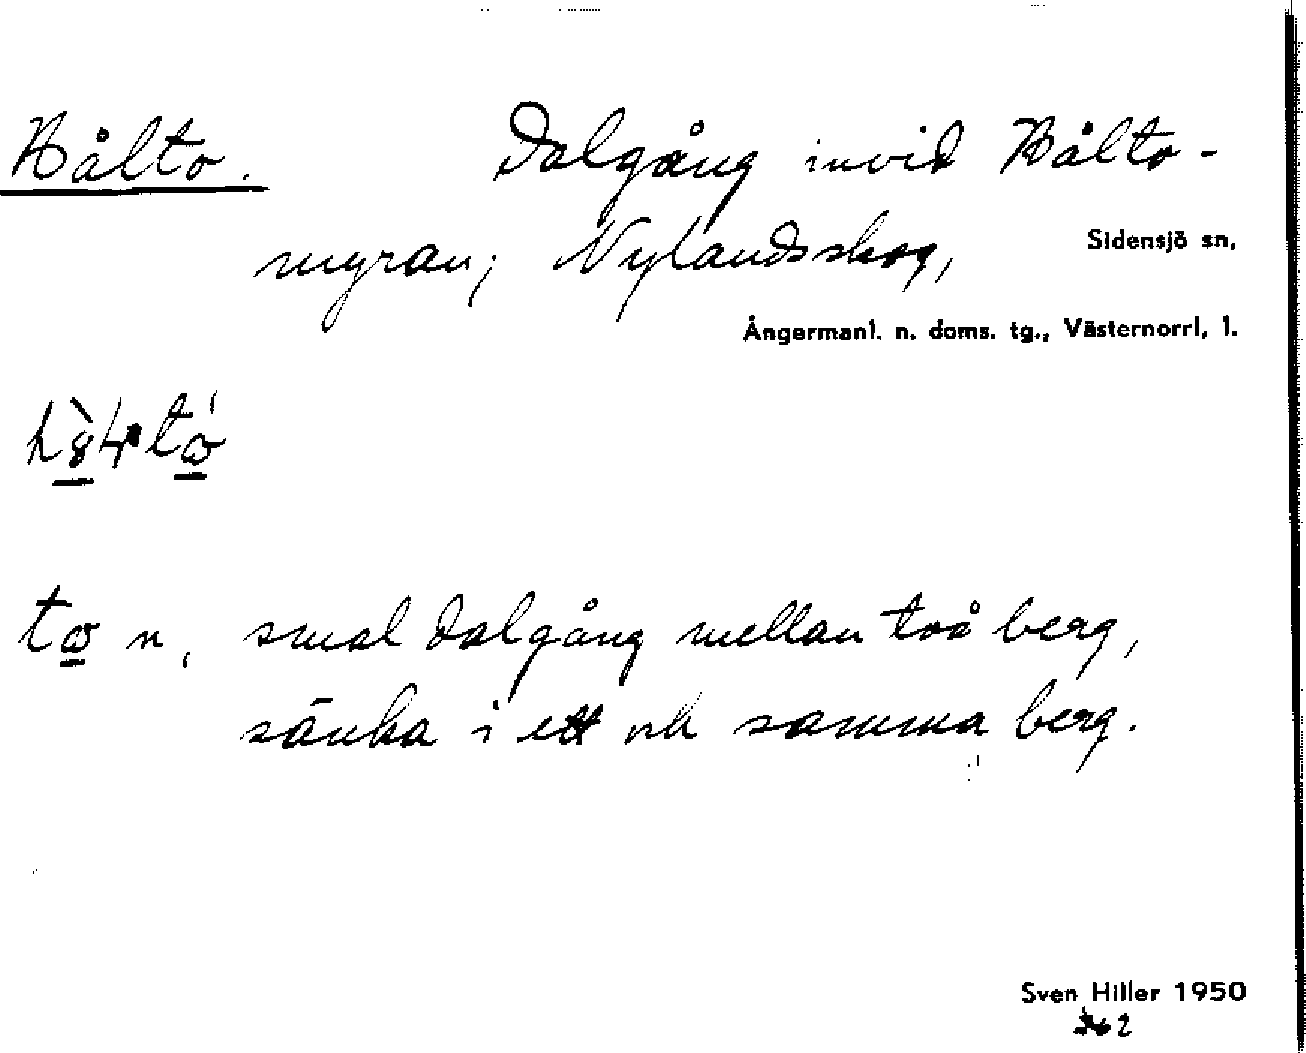 Hålto. Dalgång invid Hålto-
myran; Nylandsskog, Sidensjö sn,
Ångermanl. n. doms. tg., Västernorrl. l.
to n, smal dalgång mellan två berg,
sänka i ett och samma berg.
Sven Hiller 1950